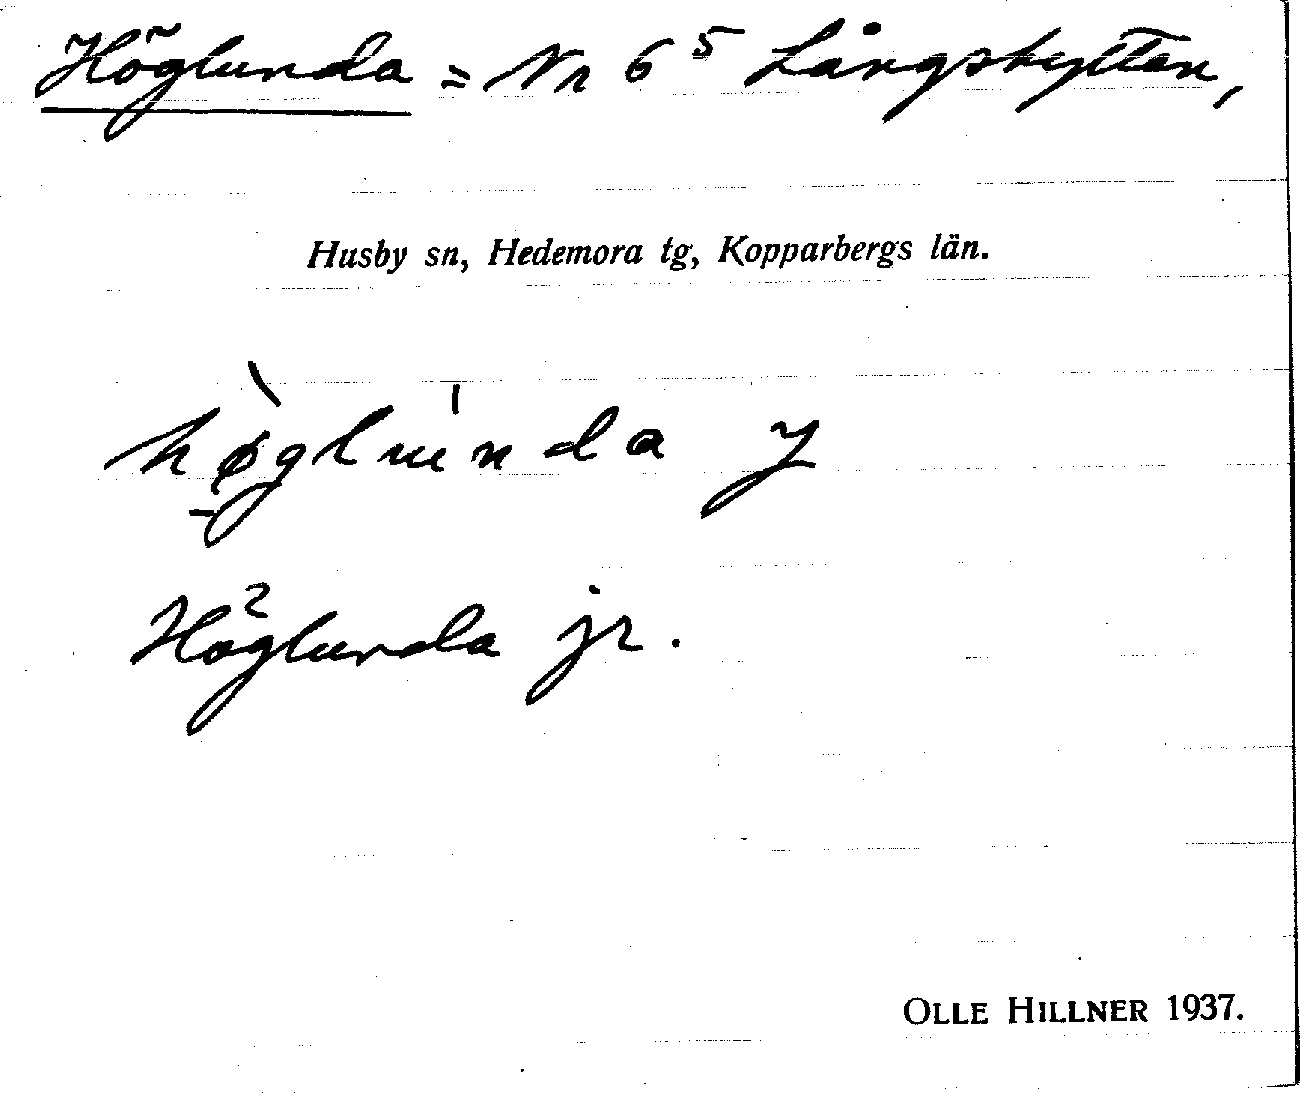 Höglunda = Nr 6⁵ Långshyttan,
Husby sn, Hedemora tg, Kopparbergs län.
Höglunda jr.
OLLE HILLNER 1937.